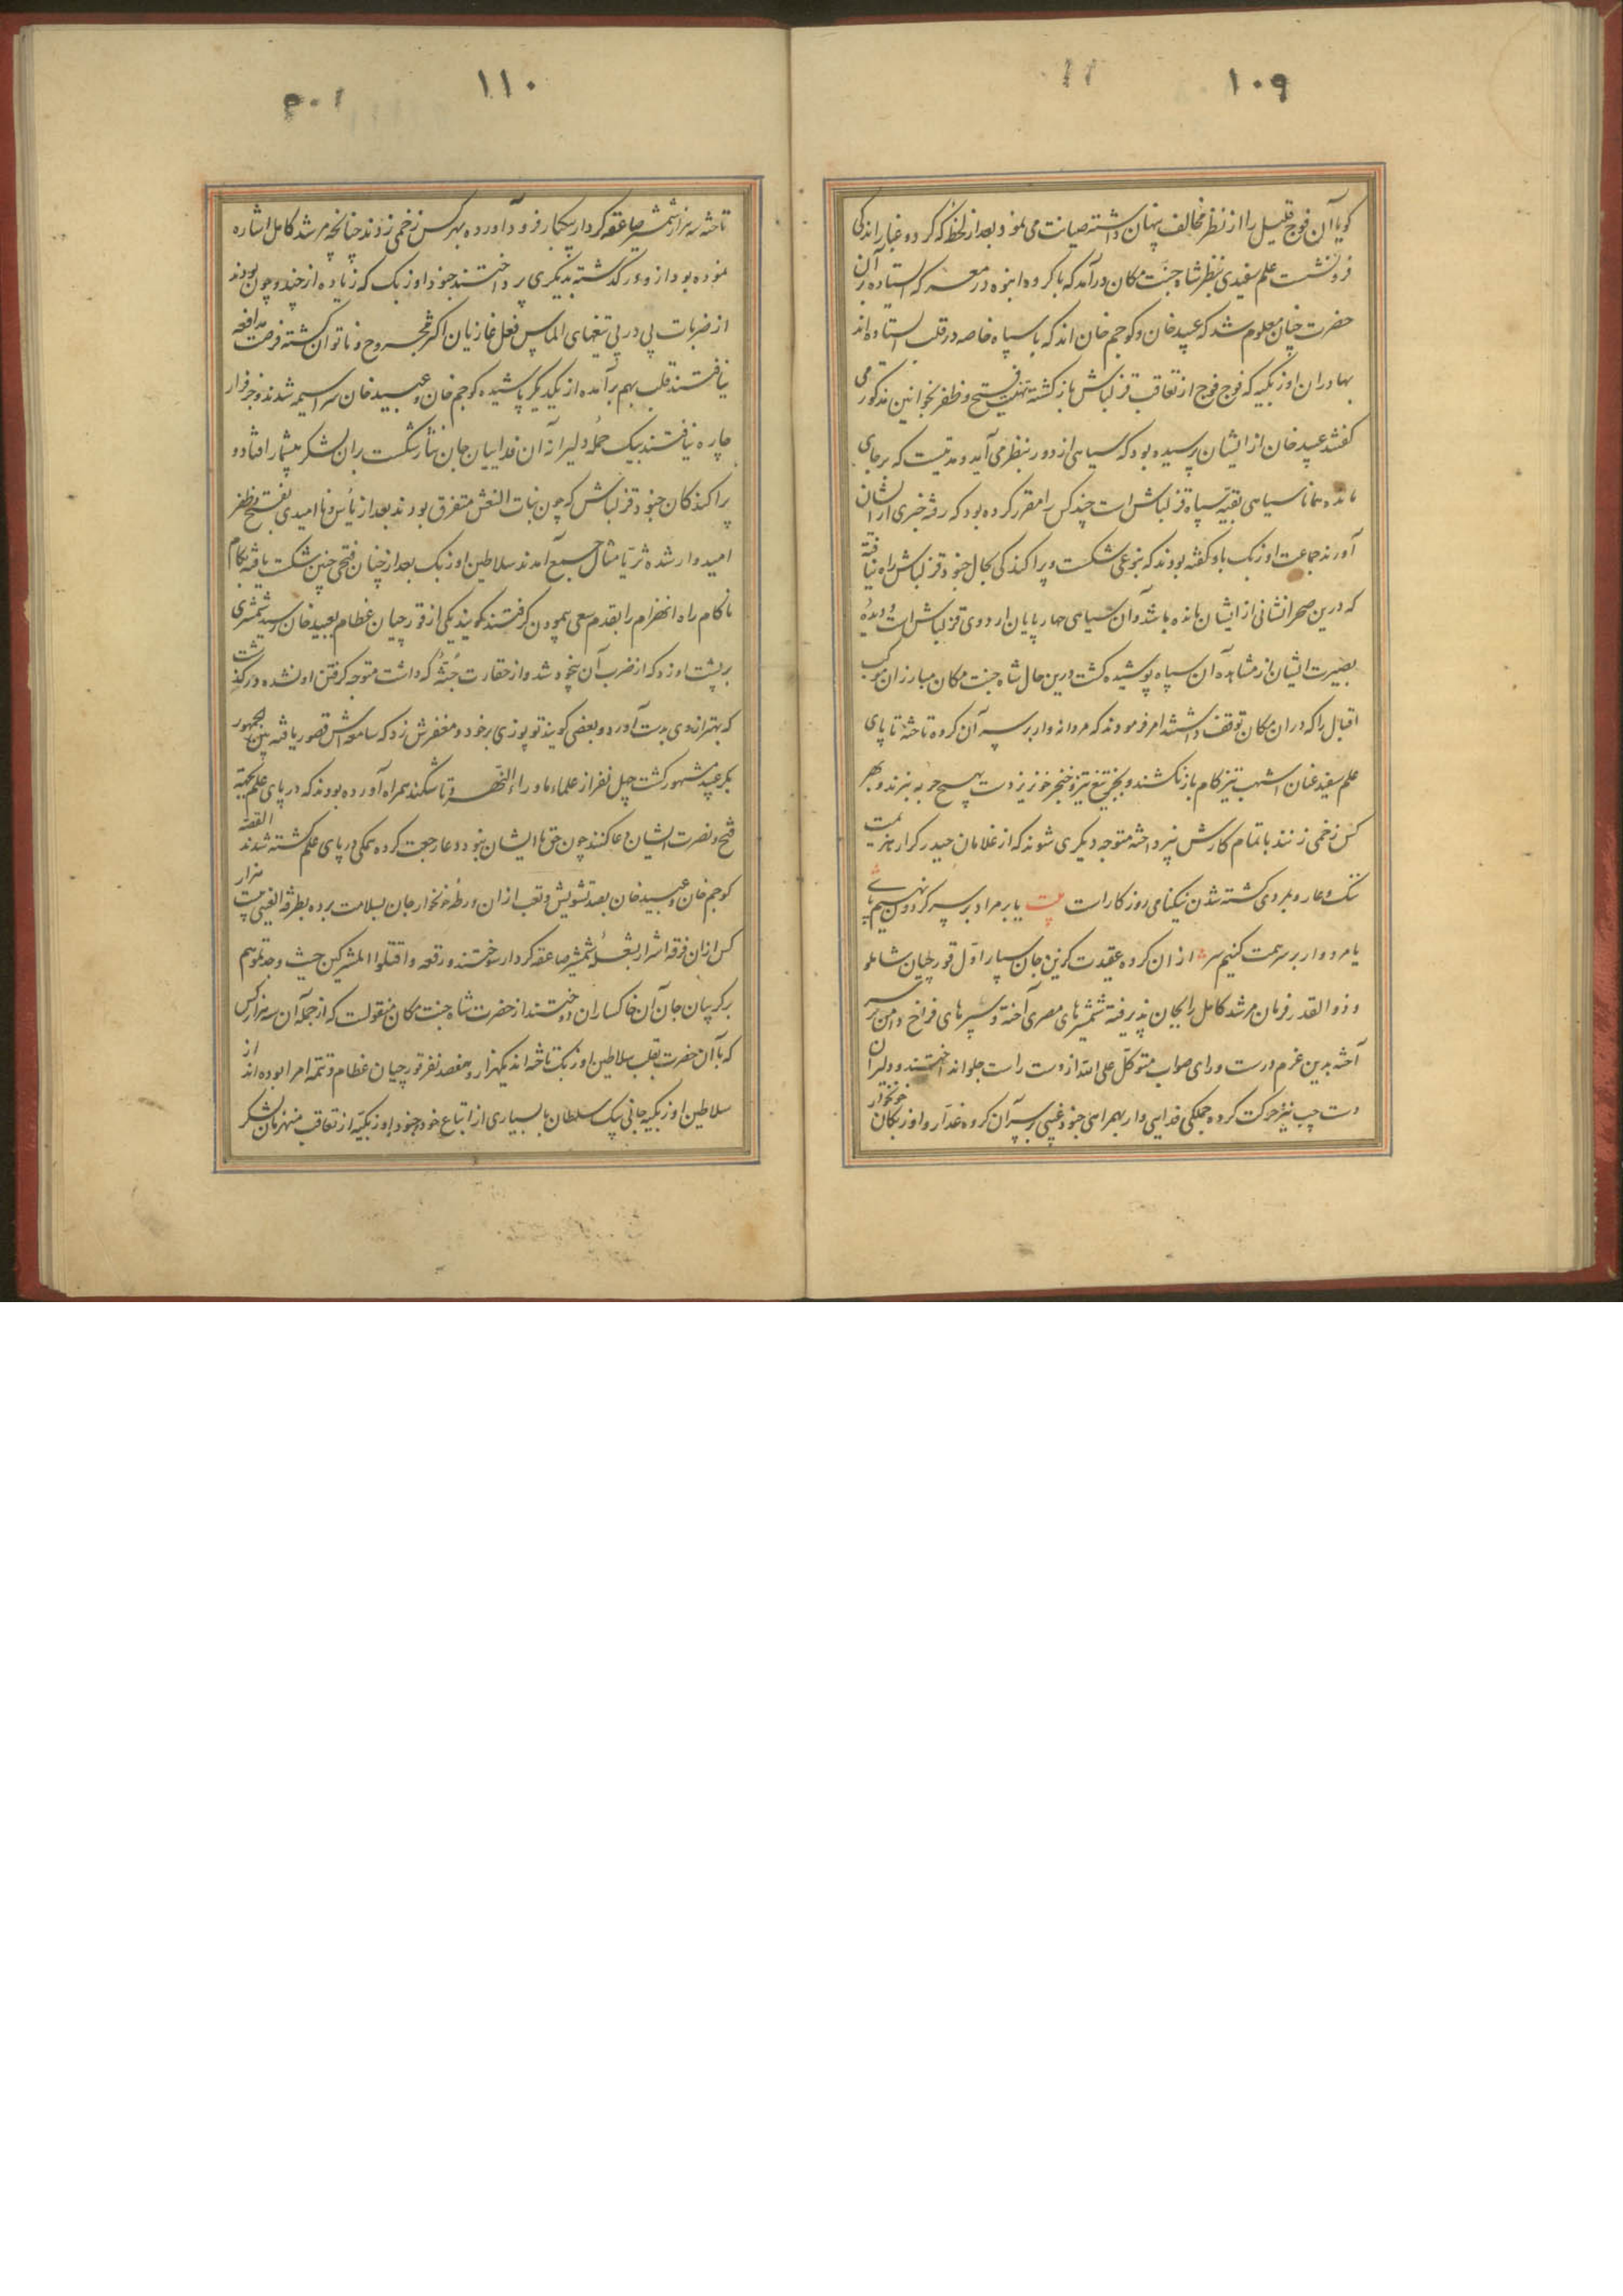 ۱۰۹
گویا آن فوج قلیل را از نظر مخالف پنهان داشته صیانت می نمود بعد از لحظهٔ که گرد و غبار اندکی
فرونشست علم سفیدی بنظر شاه جنت مکان درآمد که با گروه انبوه در معرکه ایستاده بر آن
حضرت چنان معلوم شد که عبید خان و کوجم خان اند که با سپاه خاصه در قلب ایستاده اند
بهادران اوزبکیه که فوج فوج از تعاقب قزلباش بازگشته تهنیت فتح و ظفر بخوانین مذکور می
گفتند عبید خان از ایشان پرسیده بود که سیاهی از دور بنظر می آید و مدتیست که بر جای
مانده همانا سیاهی بقیهٔ سپاه قزلباش است چند کس را مقرر کرده بود که رفته خبری از ایشان
آورند جماعت اوزبک باو گفته بودند که بنوعی شکست و پراکندگی بحال جنود قزلباش راه نیافته
که درین صحرا نشانی از ایشان مانده باشد و آن سیاهی چهارپایان اردوی قزلباش است و دیدهٔ
بصیرت ایشان از مشاهده آن سپاه پوشیده گشت درین حال شاه جنت مکان مبارزان موکب
اقبال را که در آن مکان توقف داشتند امر فرمودند که مردانه وار بر سر آن گروه تاخته تا پای
علم سفید عنان اشهب تیزکام بازنکشند و بجز تیغ تیز و خنجر خونریز دست بهیچ حربه نبرند و بهر
کس زخمی زنند باتمام کارش نپرداخته متوجه دیگری شوند که از غلامان حیدر کرار هزیمت
ننگ و عار و بمردی کشته شدن نیکنامی روزگار است بیت یا بر مراد بر سر گردون نهیم پای
یا مردوار بر سر همت کنیم سر از آن گروه عقیدت گزین جان سپار اول قورچیان شاملو
و ذوالقدر فرمان مرشد کامل را بجان پذیرفته شمشیرهای مصری آخته و سپرهای فراخ دامن بر سر
آخته بدین عزم درست و رای صواب متوکل علی الله از دست راست جلو انداختند و دلیران
دست چپ نیز حرکت کرده جملگی فدایی وار بهمراهی جنود غیبی بر سر آن گروه غدار و اوزبکان خونخوار
۱۱۰
تاخته سه هزار شمشیر صاعقه کردار بیکبار فرود آورده بهر کس زخمی زدند چنانچه مرشد کامل اشاره
نموده بود از او درگذشته بدیگری پرداختند جنود اوزبک که زیاده از چند و چون بودند
از ضربات پی در پی تیغهای الماس فعل غازیان اکثر مجروح و ناتوان گشته فرصت مدافعه
نیافتند قلب بهم برآمده از یکدیگر پاشیده کوجم خان و عبید خان سراسیمه شدند و جز فرار
چاره نیافتند بیک حملهٔ دلیرانه آن فداییان جان نثار شکست بران لشکر بیشمار افتاد و
پراکندگان جنود قزلباش که چون بنات النعش متفرق بودند بعد از یأس و ناامیدی بفتح و ظفر
امیدوار شده ثریا مثال جمع آمدند سلاطین اوزبک بعد از چنان فتحی چنین شکست یافته بکام
ناکام راه انهزام را بقدم سعی پیمودن گرفتند گویند یکی از قورچیان عظام بعبید خان رسیده شمشیری
بر پشت او زد که از ضرب آن بیخود شد و از حقارت جثهٔ که داشت متوجه گرفتن او نشده درگذشت
که بهتر از وی بدست آورد و بعضی گویند توپوزی بر خود و مغفرش زد که سامعه اش قصور یافته بین الجمهور
بکر عبید مشهور گشت چهل نفر از علماء ماوراء النهر و تاشکند همراه آورده بودند که در پای علم بجهة
فتح و نصرت ایشان دعا کنند چون حق با ایشان نبود دعا رجعت کرده همگی در پای علم کشته شدند القصه
کوجم خان و عبید خان بصد تشویش و تعب از آن ورطهٔ خونخوار جان بسلامت برده بطرفة العینی بیست هزار
کس از آن فرقه اشرار بشعلهٔ شمشیر صاعقه کردار سوختند و رقعه واقتلوا المشرکین حیث وجدتموهم
بر گریبان جان آن خاکساران دوختند از حضرت شاه جنت مکان منقولست که از جمله آن سه هزار کس
که با آن حضرت بقلب سلاطین اوزبک تاخته اند یکهزار و هفصد نفر قورچیان عظام و تتمه امرا بوده اند از
سلاطین اوزبکیه جانی بیک سلطان با بسیاری از اتباع خود و جنود اوزبکیه از تعاقب منهزمان لشکر